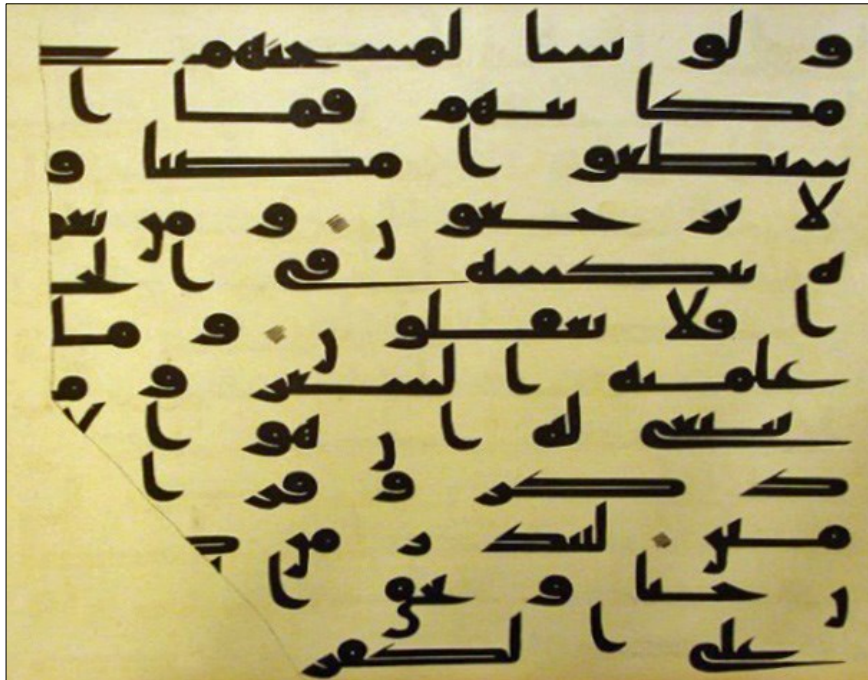 و لو نشا لمسخنهم على
مكا نتهم فما ا
ستطعوا مضيا و
لا يرجعون و من نعمر
ه ننكسه في الخلـ
ا فلا يعقلون و ما
علمنه الشعر و مـ
ينبغي له ان هو الا
ذ كر و قر ا
مبين لينذر من كـ
ن حيا و يحق ا
على الكفر